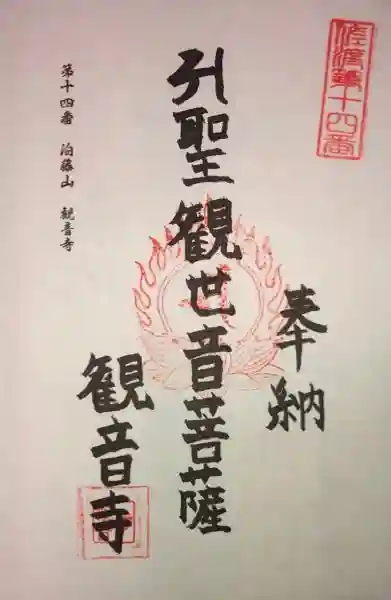 第十四番
奉納
聖観世音菩薩
観音寺
第十四番 泊藤山 観音寺